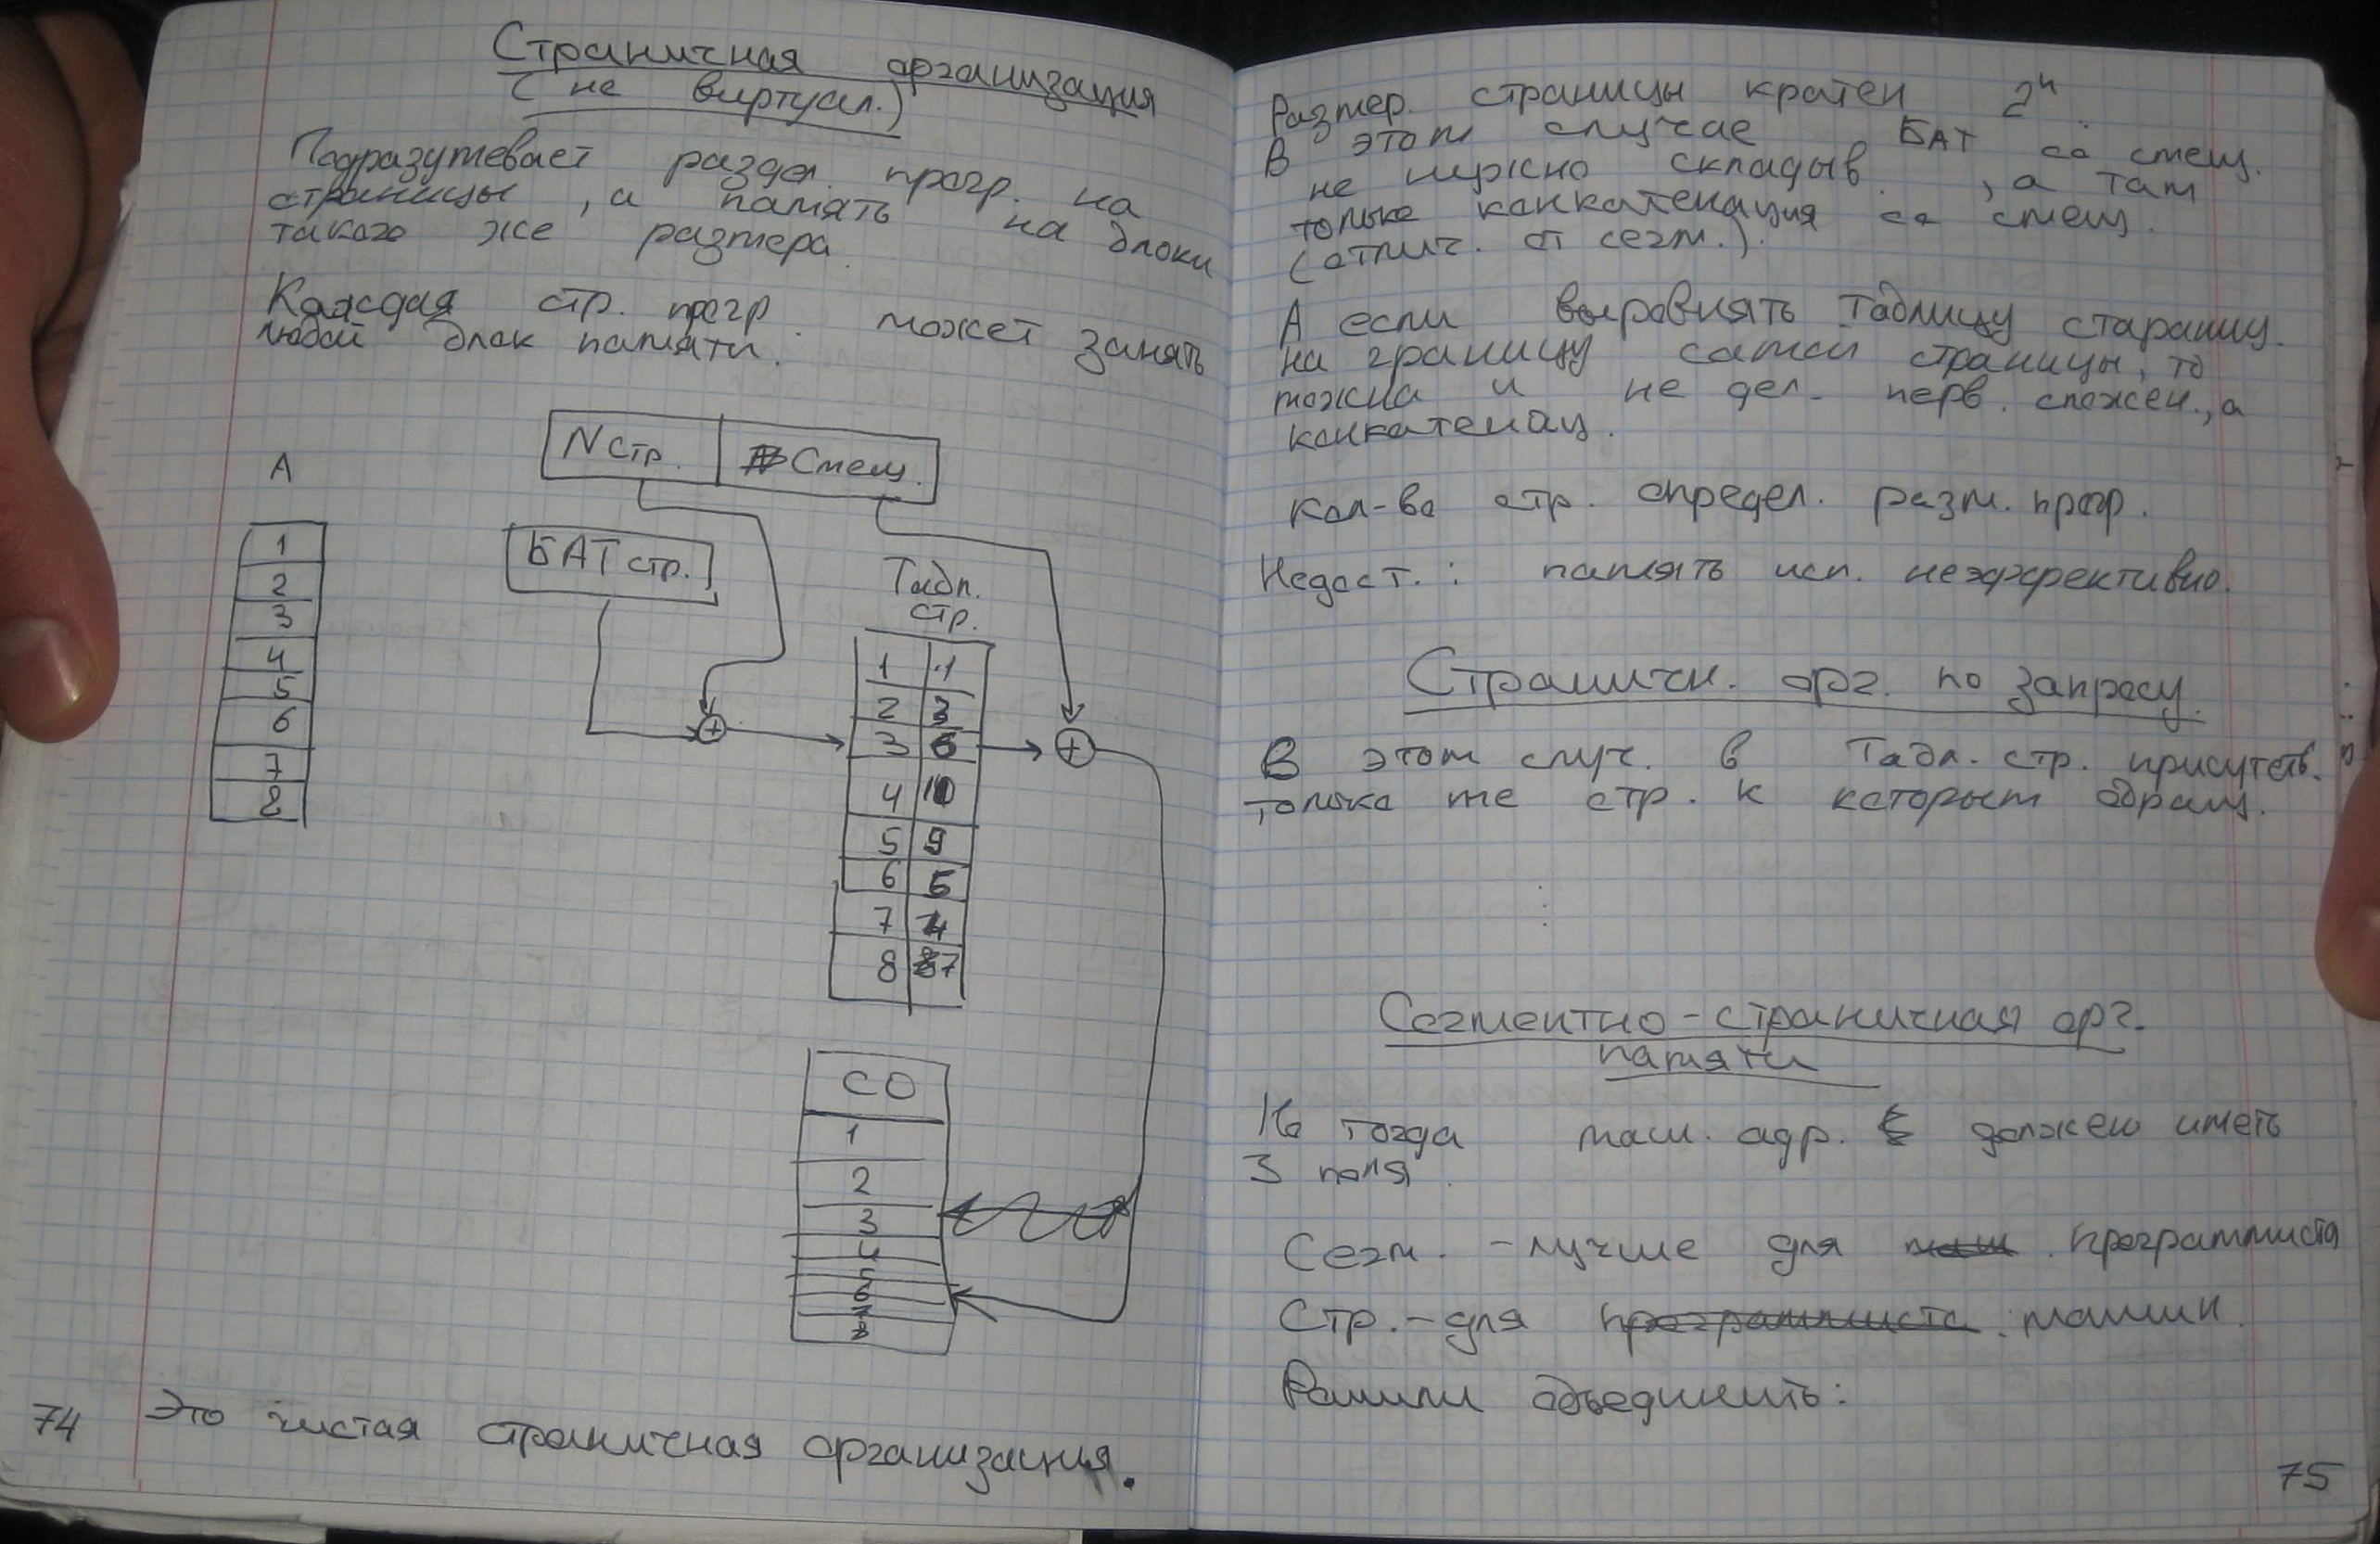 Страничная организация
(не виртуал.)
Подразумевает раздел. прогр. на
страницы, а память на блоки
такого же размера.
Каждая стр. прогр. может занять
любой блок памяти.
N стр. Смещ.
А
БАТ стр.
Табл.
стр.
1
2
3
4
5
6
7
8
1 1
2 3
3 6
4 10
5 9
6 5
7 4
8 7
СО
1
2
3
4
5
6
7
8
Это чистая страничная организация.
74
Размер. страницы кратен 2ⁿ.
В этом случае БАТ со смещ.
не нужно складыв., а там
только конкатенация со смещ.
(отлич. от сегм.).
А если выровнять таблицу страниц
на границу самой страницы, то
можно и не дел. перв. сложен., а
конкатенац.
Кол-во стр. определ. разм. прогр.
Недост.: память исп. неэффективно.
Страничн. орг. по запросу.
В этом случ. в Табл. стр. присутств.
только те стр. к которым обращ.
Сегментно-страничная орг.
памяти
тогда маш. адр. должен иметь
3 поля.
Сегм. - лучше для программиста
Стр. - для программиста машин.
Решили объединить:
75